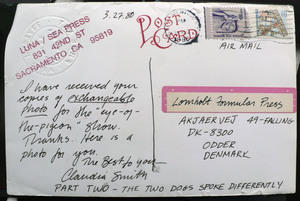 LUNA/SEA PRESS
831 42ND ST
SACRAMENTO CA 95819
3.27.80
POST
CARD
AIR MAIL
I have received your
copies of exchangeable
photo for the "eye-of-
the-pigeon" show.
Thanks. Here is a
photo for you.
The Best to you
Claudia Smith
Lomholt Formular Press
AKJAERVEJ 49-FALLING
DK-8300
ODDER
DENMARK
PART TWO - THE TWO DOGS SPOKE DIFFERENTLY